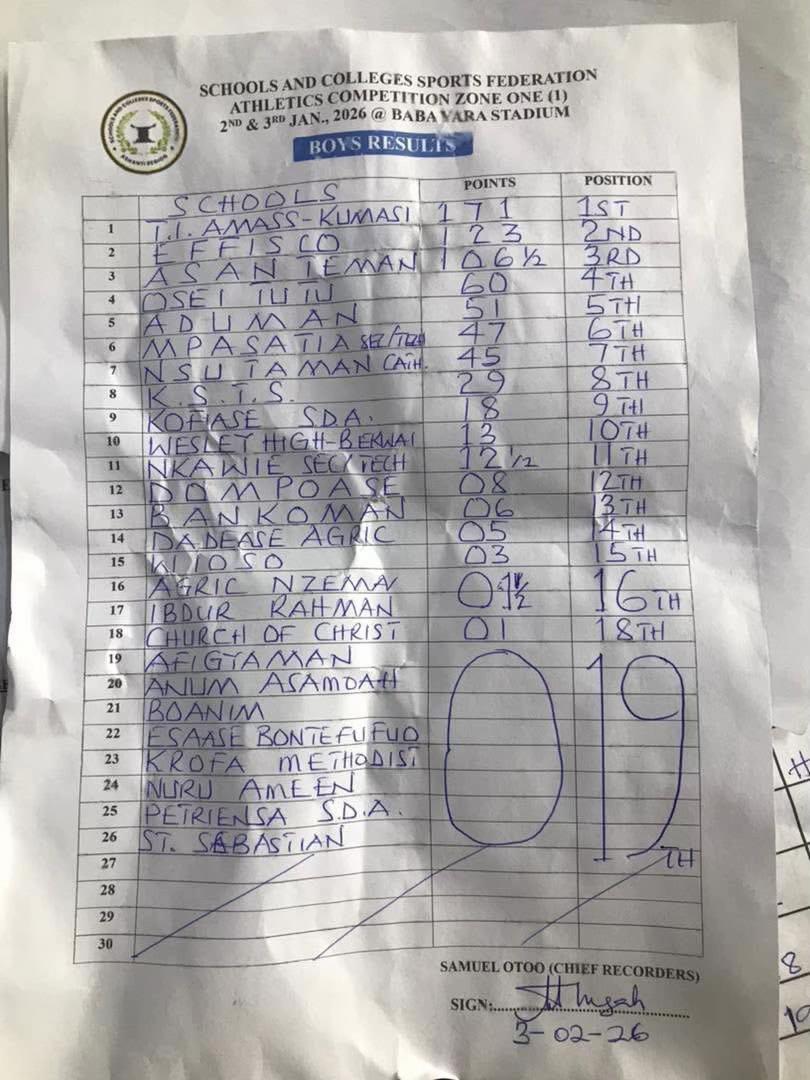 SCHOOLS AND COLLEGES SPORTS FEDERATION
ATHLETICS COMPETITION ZONE ONE (1)
2ND & 3RD JAN., 2026 @ BABA YARA STADIUM
BOYS RESULTS
SCHOOLS POINTS POSITION
1 T.I. AMASS-KUMASI 171 1ST
2 EFFISCO 123 2ND
3 ASANTEMAN 106 ½ 3RD
4 OSEI TUTU 60 4TH
5 ADUMAN 51 5TH
6 MPASATIA SEC/TECH 47 6TH
7 NSUTAMAN CATH. 45 7TH
8 K.S.T.S. 29 8TH
9 KOFIASE SDA. 18 9TH
10 WESLEY HIGH-BEKWAI 13 10TH
11 NKAWIE SEC/TECH 12 ½ 11TH
12 DOMPOASE 08 12TH
13 BANKOMAN 06 13TH
14 DADEASE AGRIC 05 14TH
15 03 15TH
16 AGRIC NZEMA 01½ 16TH
17 IBDUR RAHMAN
18 CHURCH OF CHRIST 01 18TH
19 AFIGYAMAN 0 19TH
20 ANUM ASAMOAH
21 BOANIM
22 ESAASE BONTEFUFUO
23 KROFA METHODIST
24 NURU AMEEN
25 PETRIENSA S.D.A.
26 ST. SEBASTIAN
27
28
29
30
SAMUEL OTOO (CHIEF RECORDERS)
SIGN:
3-02-26